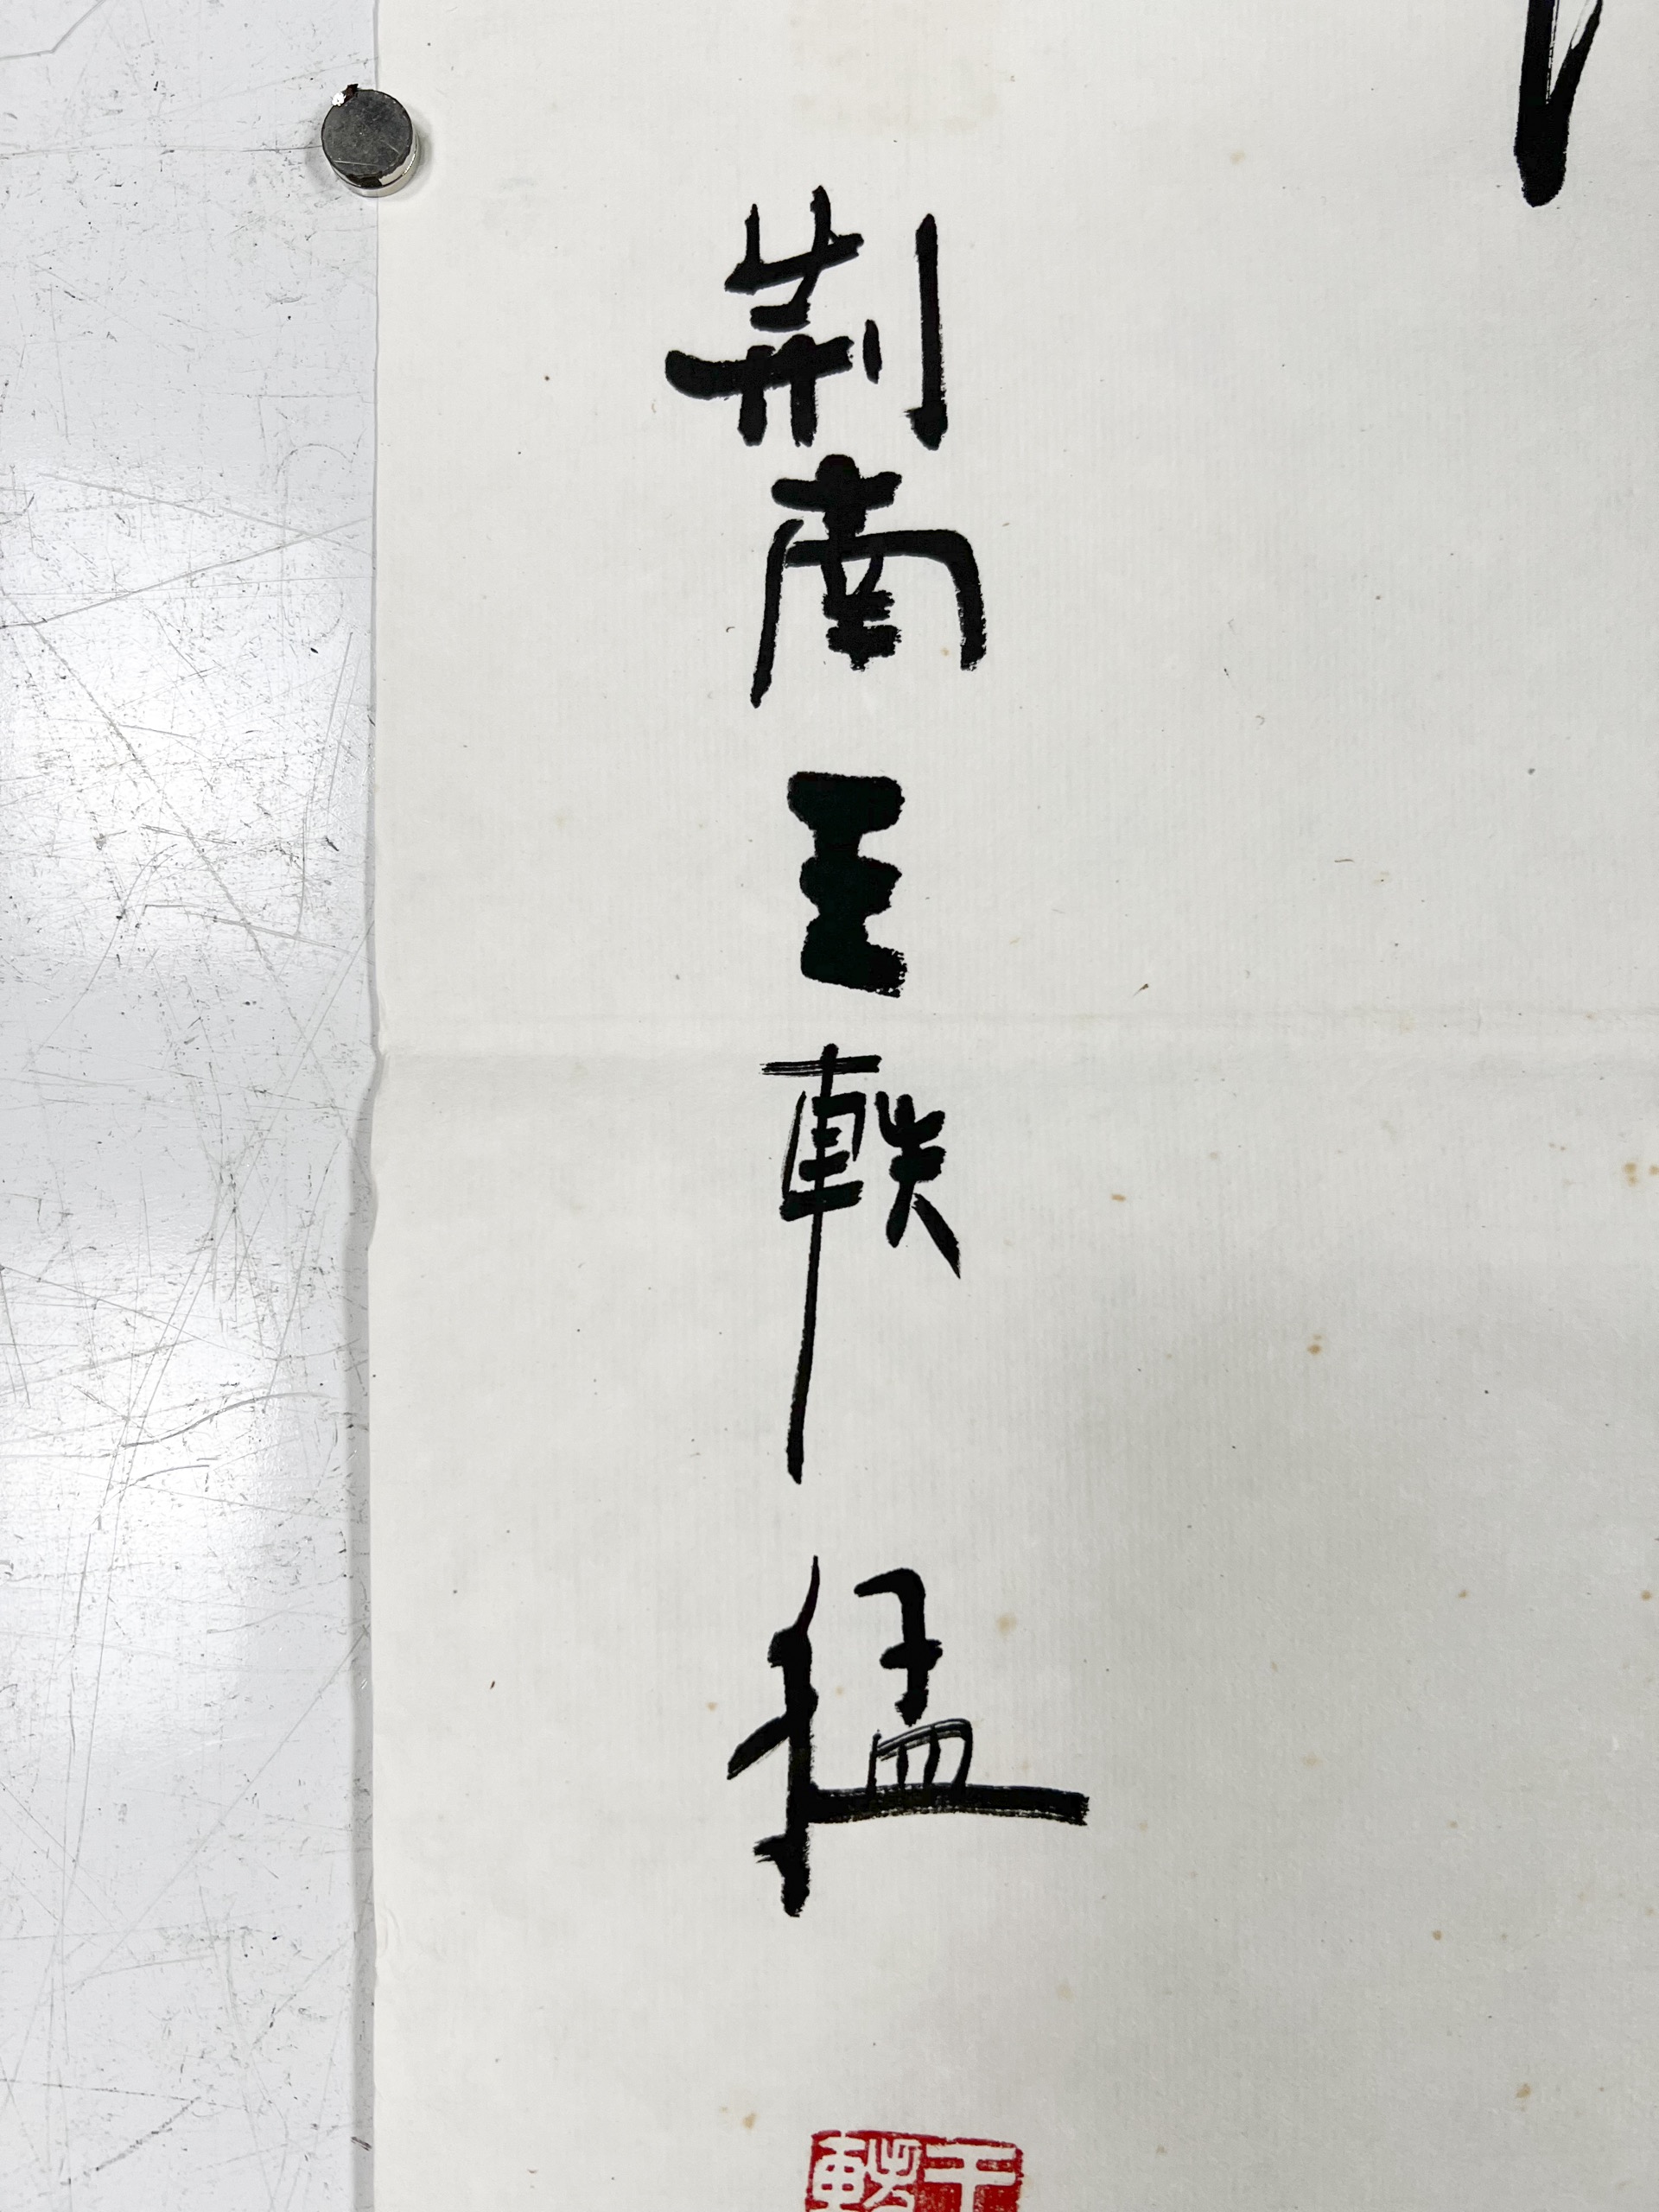 荆南王軼猛